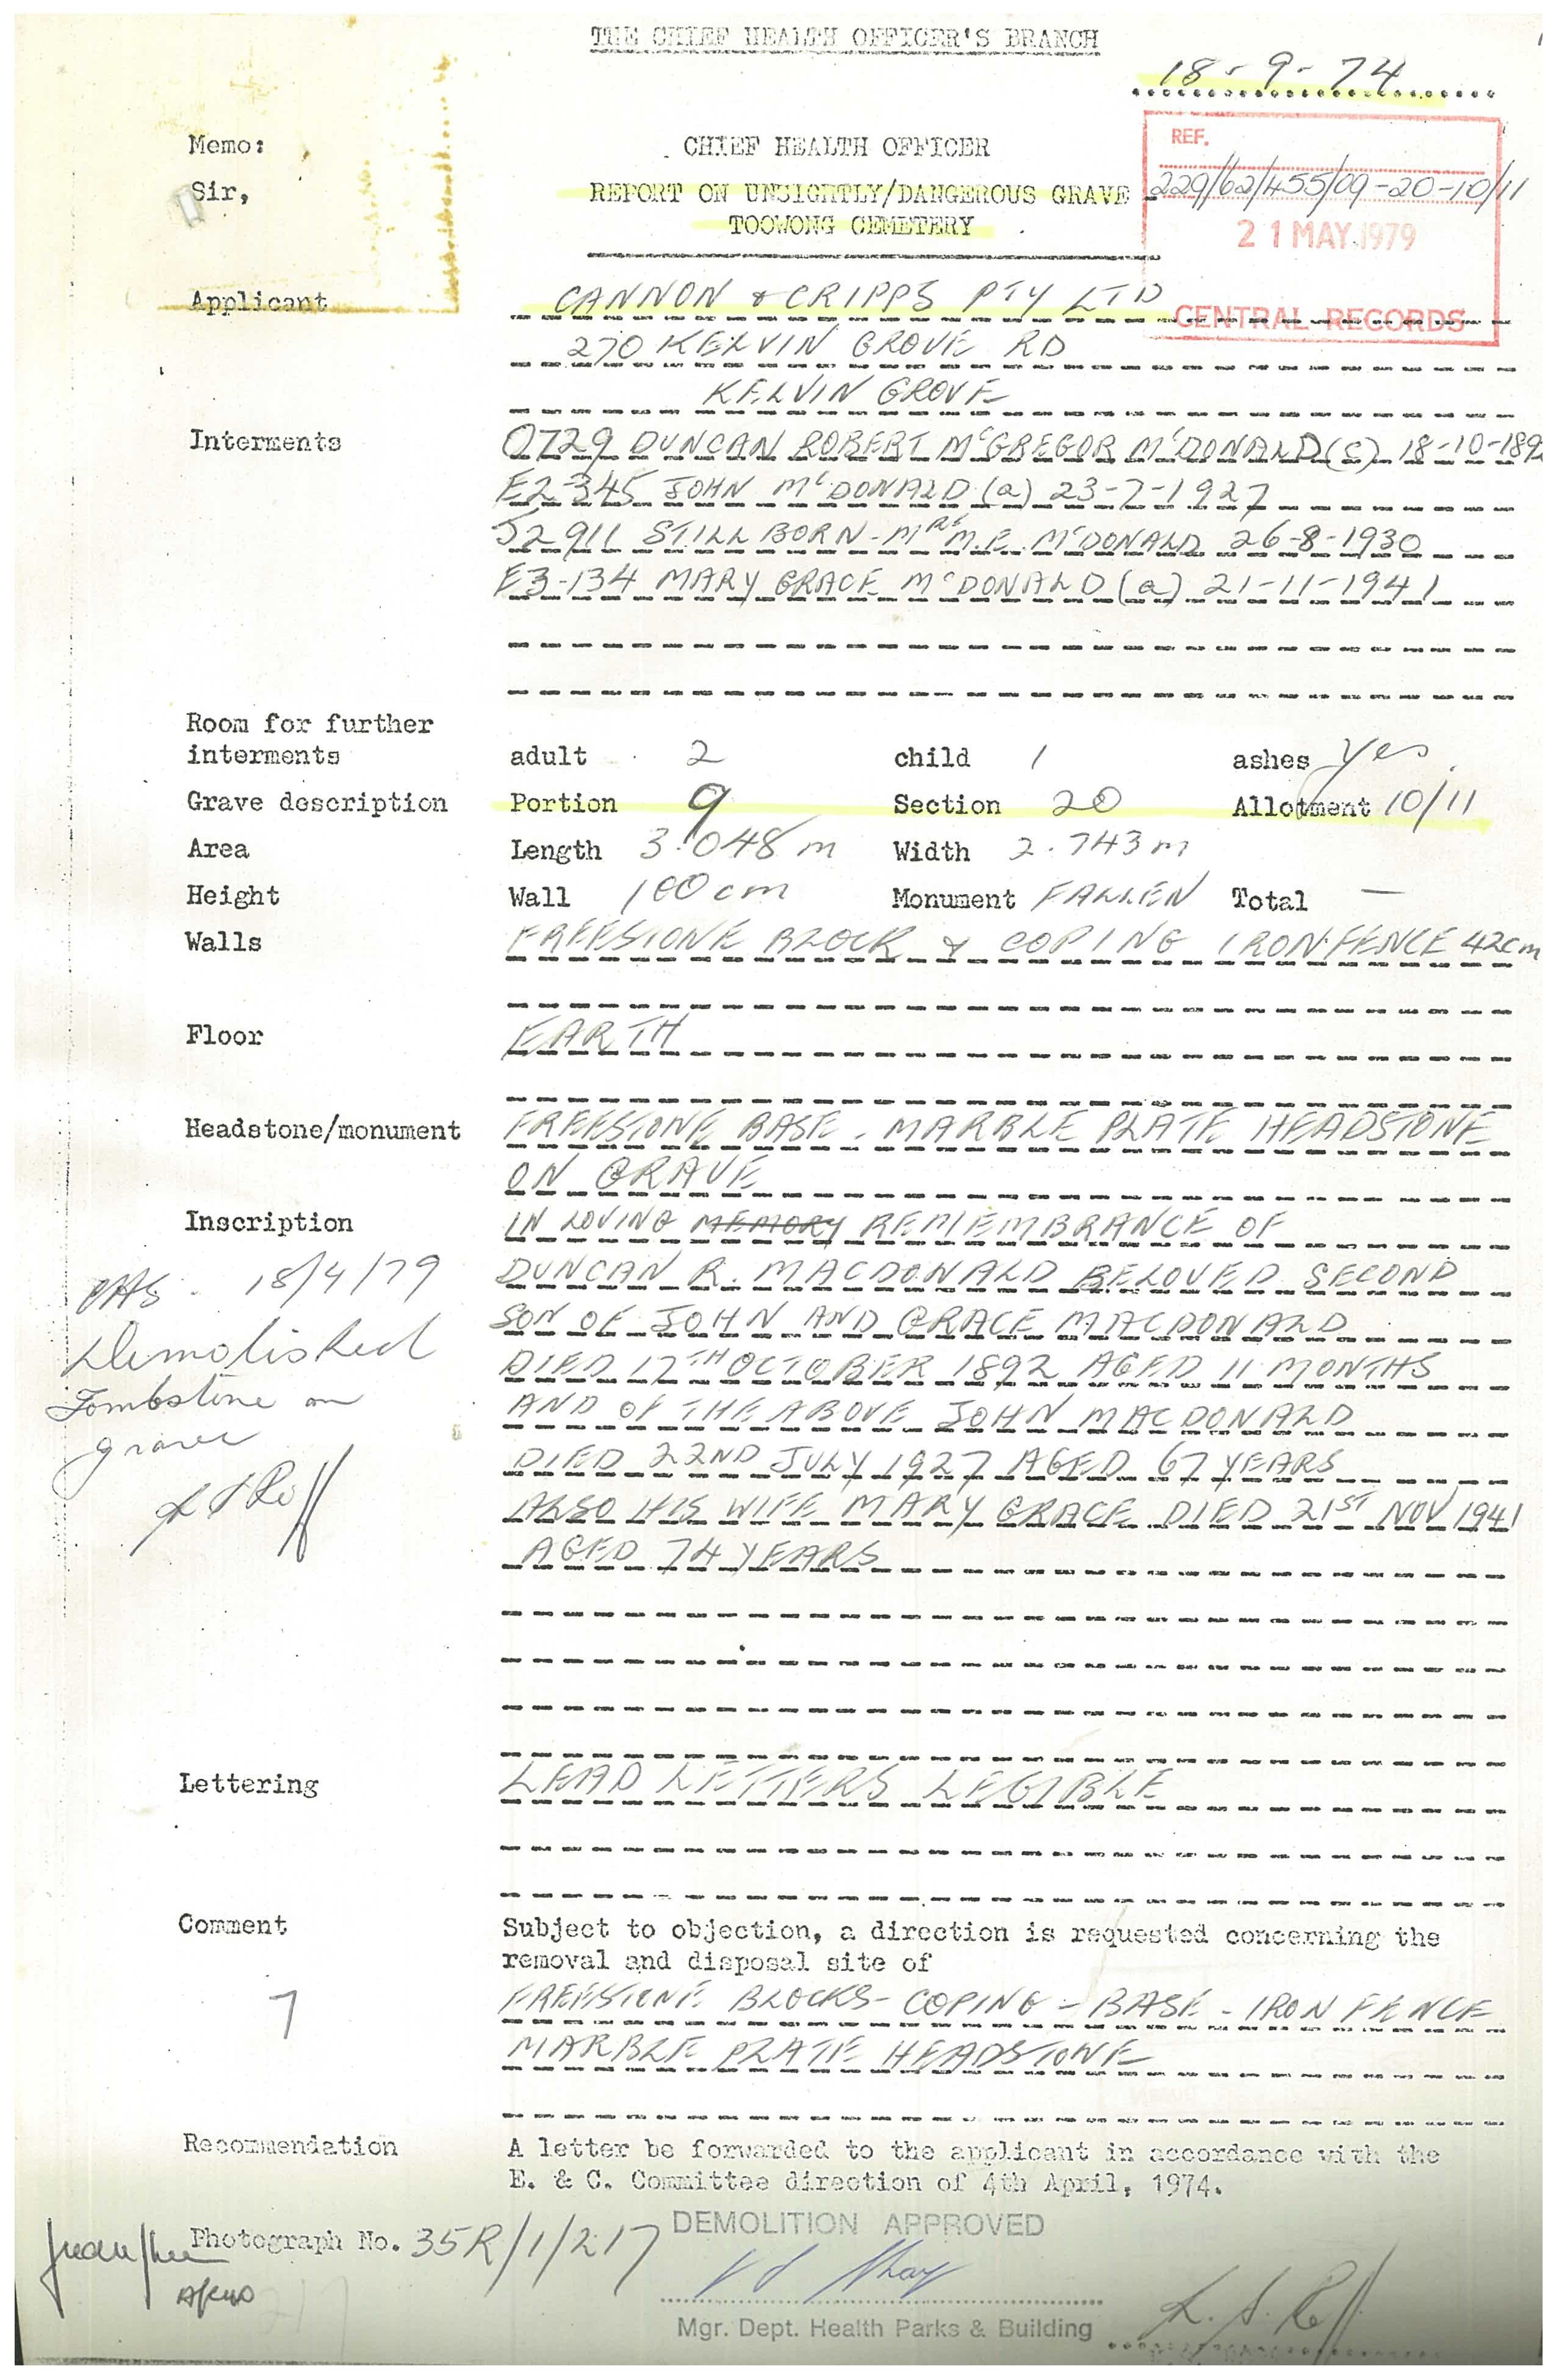 THE CHIEF HEALTH OFFICER'S BRANCH
18-9-74
Memo:
CHIEF HEALTH OFFICER
REF.
Sir,
REPORT ON UNSIGHTLY/DANGEROUS GRAVE
229/62/455/09-20-10/11
TOOWONG CEMETERY
21 MAY 1979
Applicant CANNON & CRIPPS PTY LTD
CENTRAL RECORDS
270 KELVIN GROVE RD
KELVIN GROVE
Interments 0729 DUNCAN ROBERT McGREGOR McDONALD (c) 18-10-189
E2345 JOHN McDONALD (a) 23-7-1927
J2911 STILL BORN - MRS M.E. McDONALD 26-8-1930
E3-134 MARY GRACE McDONALD (a) 21-11-1941
Room for further
interments adult 2 child 1 ashes yes
Grave description Portion 9 Section 20 Allotment 10/11
Area Length 3.048 m Width 2.743 m
Height Wall 100 cm Monument FALLEN Total —
Walls FREESTONE BLOCK & COPING IRON FENCE 42cm
Floor EARTH
Headstone/monument FREESTONE BASE. MARBLE PLATE HEADSTONE
ON GRAVE
Inscription IN LOVING MEMORY REMEMBRANCE OF
DUNCAN R. MACDONALD BELOVED SECOND
18/4/79
SON OF JOHN AND GRACE MACDONALD
Demolished
DIED 17TH OCTOBER 1892 AGED 11 MONTHS
Tombstone on
AND OF THE ABOVE JOHN MACDONALD
grave
DIED 22ND JULY 1927 AGED 67 YEARS
ALSO HIS WIFE MARY GRACE DIED 21ST NOV 1941
AGED 74 YEARS
Lettering LEAD LETTERS LEGIBLE
Comment Subject to objection, a direction is requested concerning the
removal and disposal site of
7
FREESTONE BLOCKS - COPING - BASE - IRON FENCE
MARBLE PLATE HEADSTONE
Recommendation A letter be forwarded to the applicant in accordance with the
E. & C. Committee direction of 4th April, 1974.
Photograph No. 35R/1/217
DEMOLITION APPROVED
Mgr. Dept. Health Parks & Building